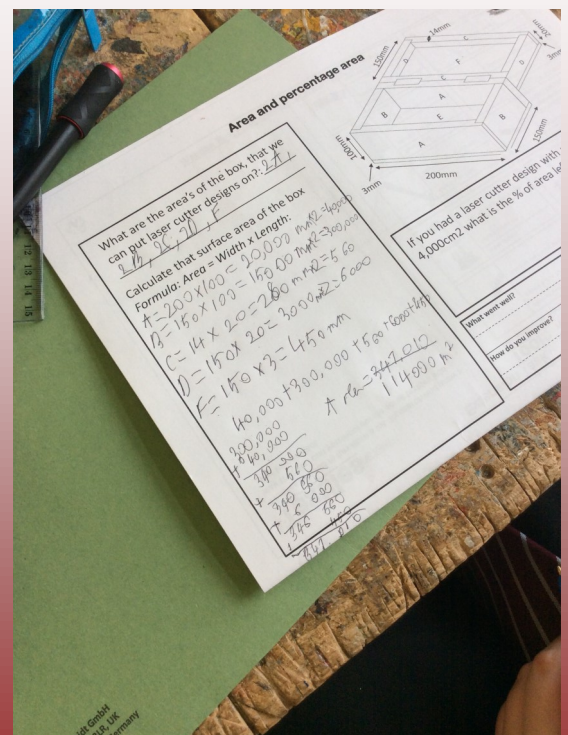 Area and percentage area
What are the area's of the box, that we
can put laser cutter designs on?: 2A,
2B, 2C, 2D, F
Calculate that surface area of the box
Formula: Area = Width x Length:
A=200x100=20,000 mm x2=40000
B=150x100=15000 mm x2=300,000
C=14x20=280 mm x2=560
D=150x20=3000 mm x2=6000
F=150x3=450mm
40,000+300,000+560+6000+450
Area=347,010
114000 m2
300,000
+ 40,000
340 000
+ 560
340 560
+ 6 000
346 560
+ 450
347, 010
14mm
150mm
20mm
3mm
C
D
F
C
D
A
B
E
B
A
100mm
3mm
200mm
150mm
If you had a laser cutter design with
4,000cm2 what is the % of area
What went well?
How do you improve?
12 13 14 15
GmbH
UK